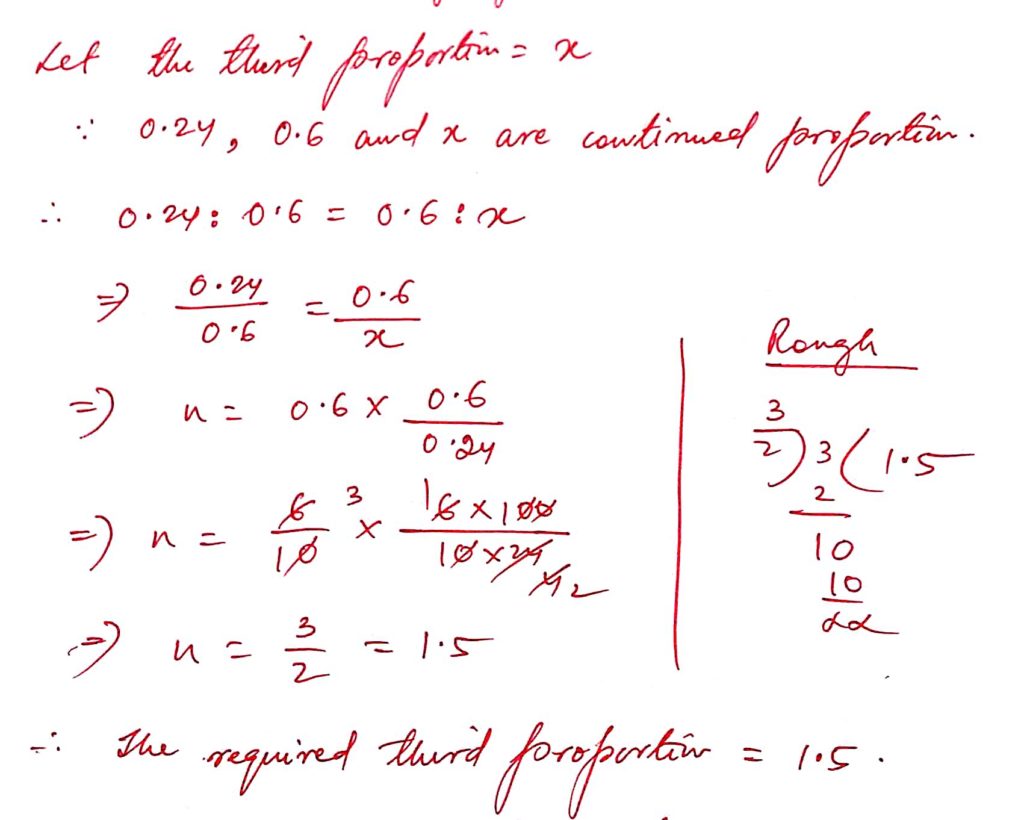 Let the third proportion = x
∵ 0.24, 0.6 and x are continued proportion.
∴ 0.24 : 0.6 = 0.6 : x
⇒ 0.24/0.6 = 0.6/x
⇒ x = 0.6 × 0.6/0.24
⇒ x = 6/10 3 × 16×100/10×24 42
⇒ x = 3/2 = 1.5
∴ The required third proportion = 1.5.
Rough
3
2 ) 3 ( 1.5
2
10
10
xx